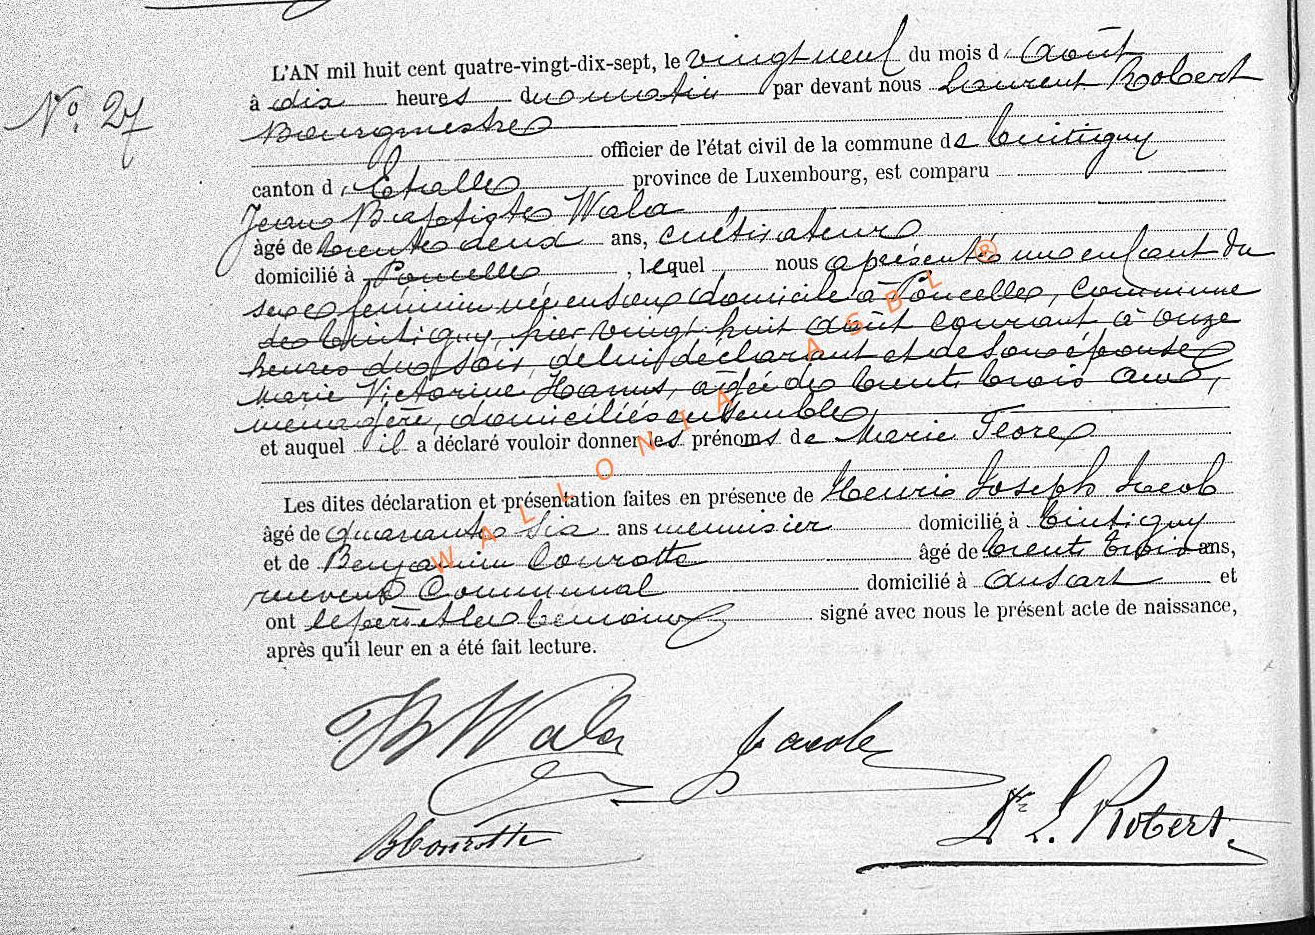 N°. 27
L'AN mil huit cent quatre-vingt-dix-sept, le vingt neuf du mois d'Août
à dix heures du matin par devant nous Laurent Robert
Bourgmestre
officier de l'état civil de la commune de Tintigny
canton d'Etalle province de Luxembourg, est comparu
Jean Baptiste Wala
âgé de trente deux ans, cultivateur
domicilié à Poncelle, lequel nous a présenté un enfant du
sexe féminin né en son domicile à Poncelle, commune
de Tintigny, hier vingt huit août courant à onze
heures du soir, de lui déclarant et de son épouse
Marie Victorine Hanus, âgée de trente trois ans,
ménagère, domiciliés ensemble,
et auquel il a déclaré vouloir donner les prénoms de Marie
Les dites déclaration et présentation faites en présence de Henri Joseph Jacob
âgé de quarante six ans menuisier domicilié à Tintigny
et de Benjamin Courotte âgé de trente trois ans,
receveur Communal domicilié à Ansart et
ont le père et les témoins signé avec nous le présent acte de naissance,
après qu'il leur en a été fait lecture.
JB Wala
Jacob
B Courotte
Dr L. Robert.
WALLONIA ASBL ®